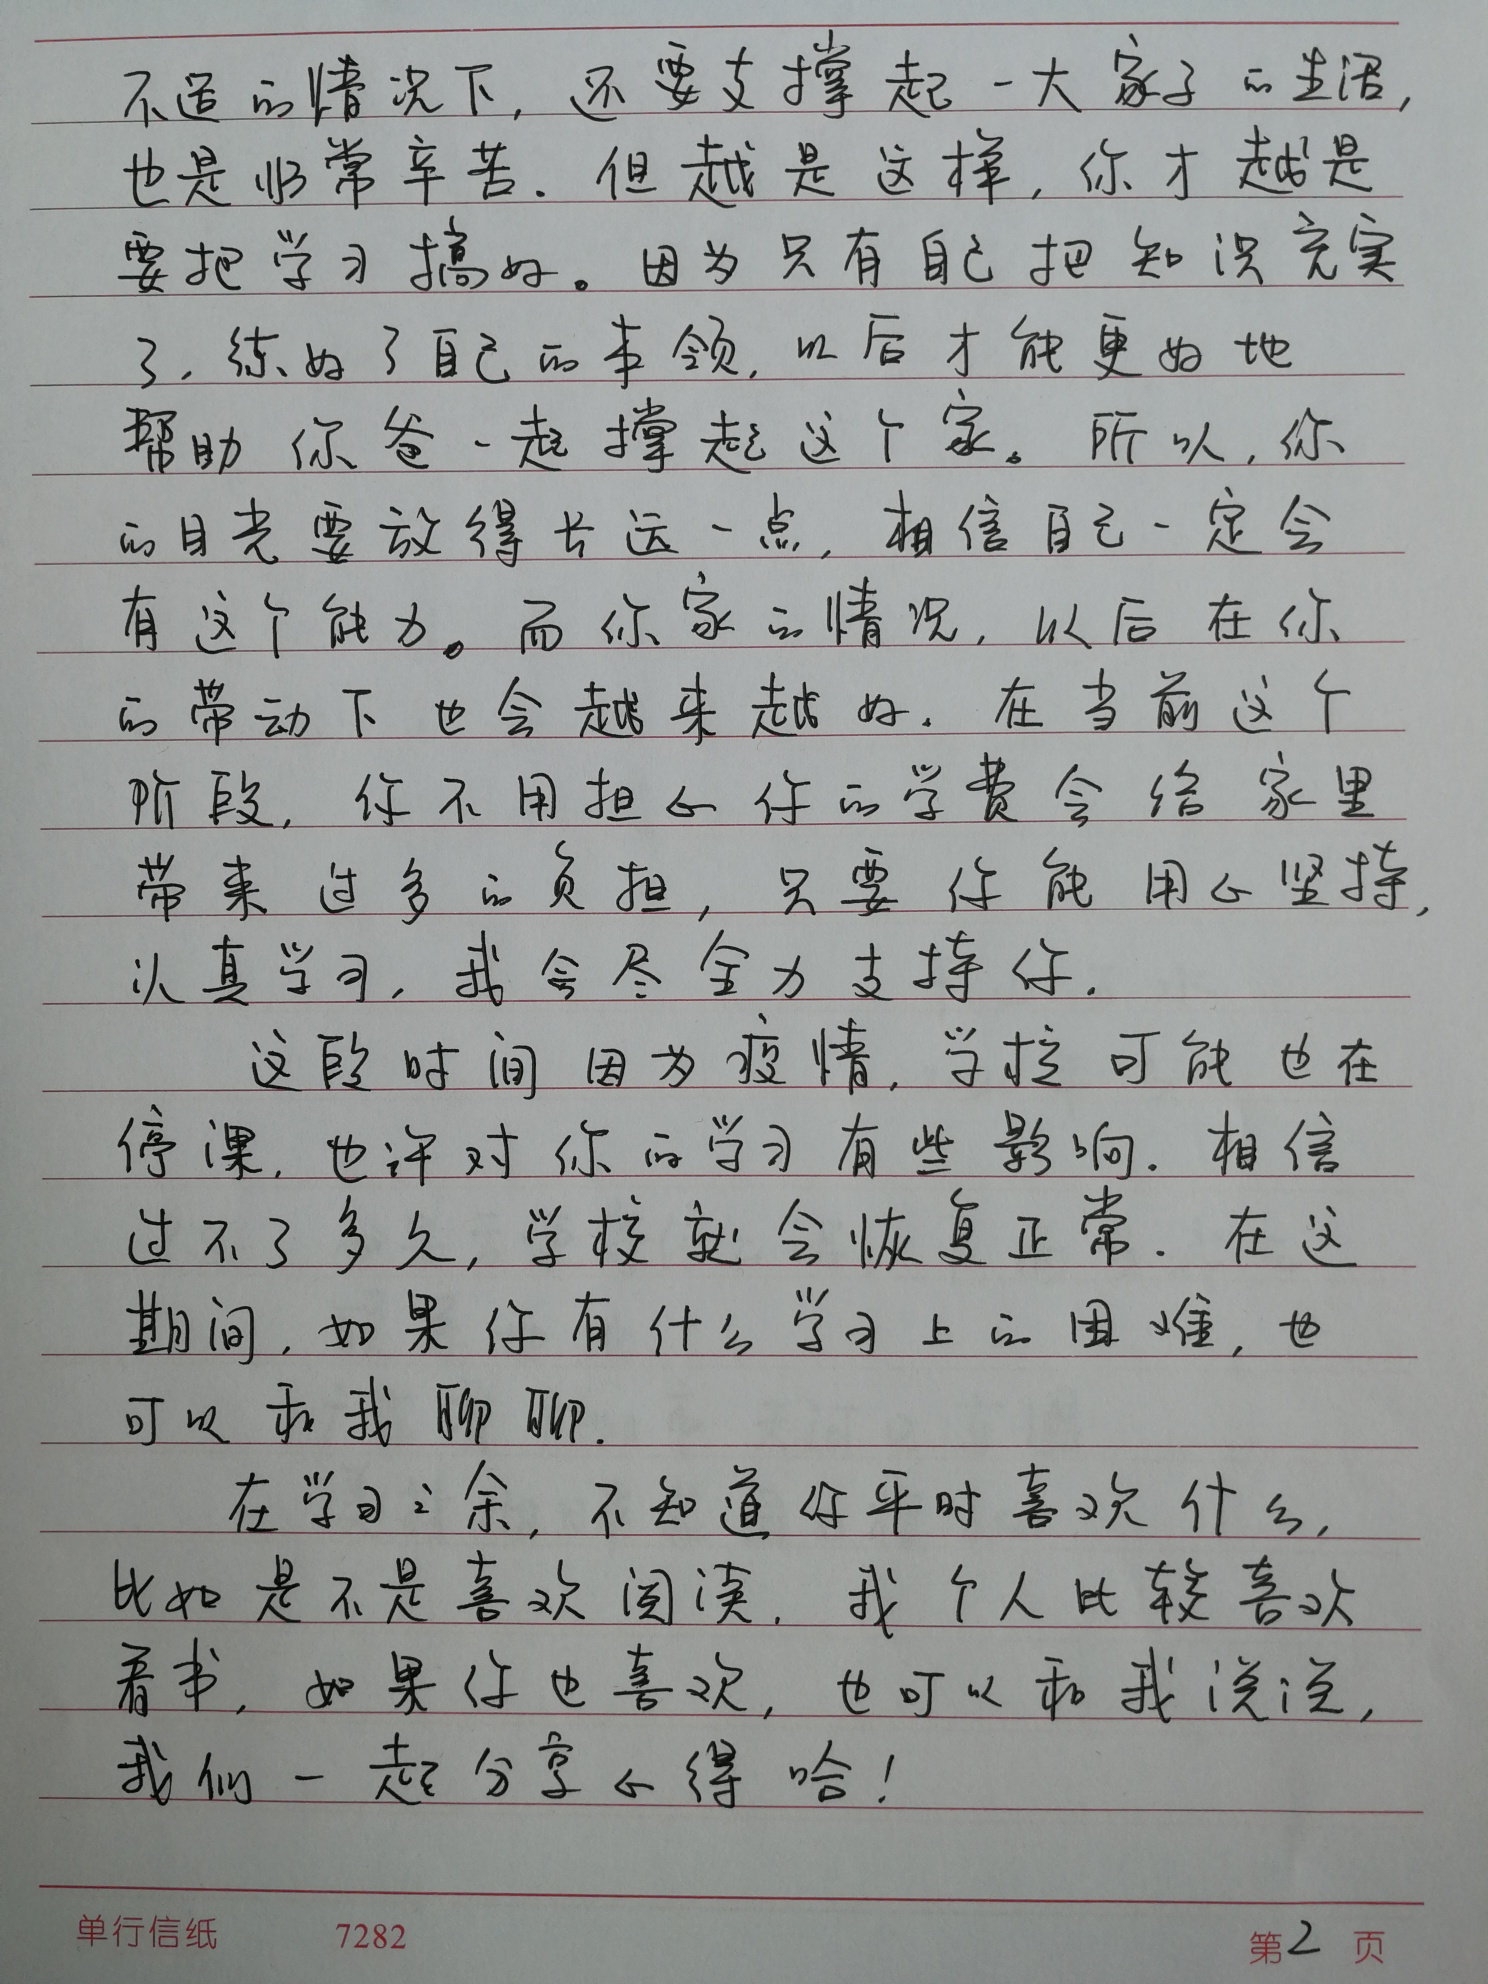 不适的情况下，还要支撑起一大家子的生活，
也是非常辛苦．但越是这样，你才越是
要把学习搞好。因为只有自己把知识充实
了，练好了自己的本领，以后才能更好地
帮助你爸一起撑起这个家。所以，你
的目光要放得长远一点，相信自己一定会
有这个能力。而你家的情况，以后在你
的带动下也会越来越好．在当前这个
阶段，你不用担心你的学费会给家里
带来过多的负担，只要你能用心坚持，
认真学习，我会尽全力支持你．
这段时间因为疫情，学校可能也在
停课，也许对你的学习有些影响．相信
过不了多久，学校就会恢复正常．在这
期间，如果你有什么学习上的困难，也
可以和我聊聊．
在学习之余，不知道你平时喜欢什么，
比如是不是喜欢阅读．我个人比较喜欢
看书，如果你也喜欢，也可以和我说说，
我们一起分享心得哈！
单行信纸 7282 第2页